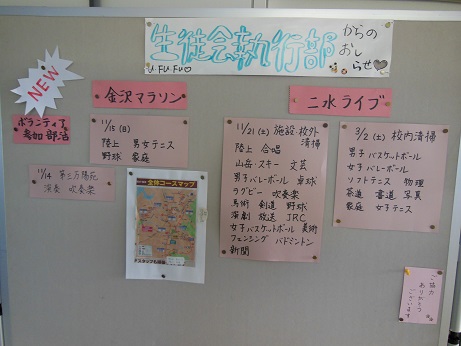 生徒会執行部からのおしらせ♡
U・FU・FU○
NEW
ボランティア
参加部活
11/14 第三万陽苑
演奏 吹奏楽
金沢マラソン
11/15(日)
陸上 男女テニス
野球 家庭
全体コースマップ
二水ライブ
11/21(土) 施設・校外清掃
陸上 合唱
山岳・スキー 文芸
男子バレーボール 卓球
ラグビー 吹奏楽
馬術 剣道 野球
演劇 放送 JRC
女子バスケットボール 美術
フェンシング バドミントン
新聞
3/2(土) 校内清掃
男子バスケットボール
女子バレーボール
ソフトテニス 物理
茶道 書道 写真
家庭 女子テニス
ご協力
ありがとう
ございます